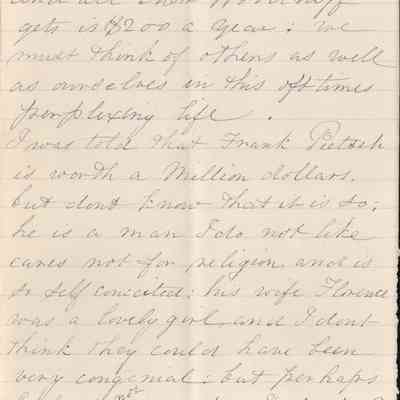 and all
gets is $200 a year: we
must think of others as well
as ourselves in this oft times
perplexing life.
I was told that Frank
is worth a Million dollars.
but dont know that it is so;
he is a man I do not like
cares not for religion and is
so self conceited: his wife Florence
was a lovely girl and I dont
think they could have been
very congenial: but perhaps
not